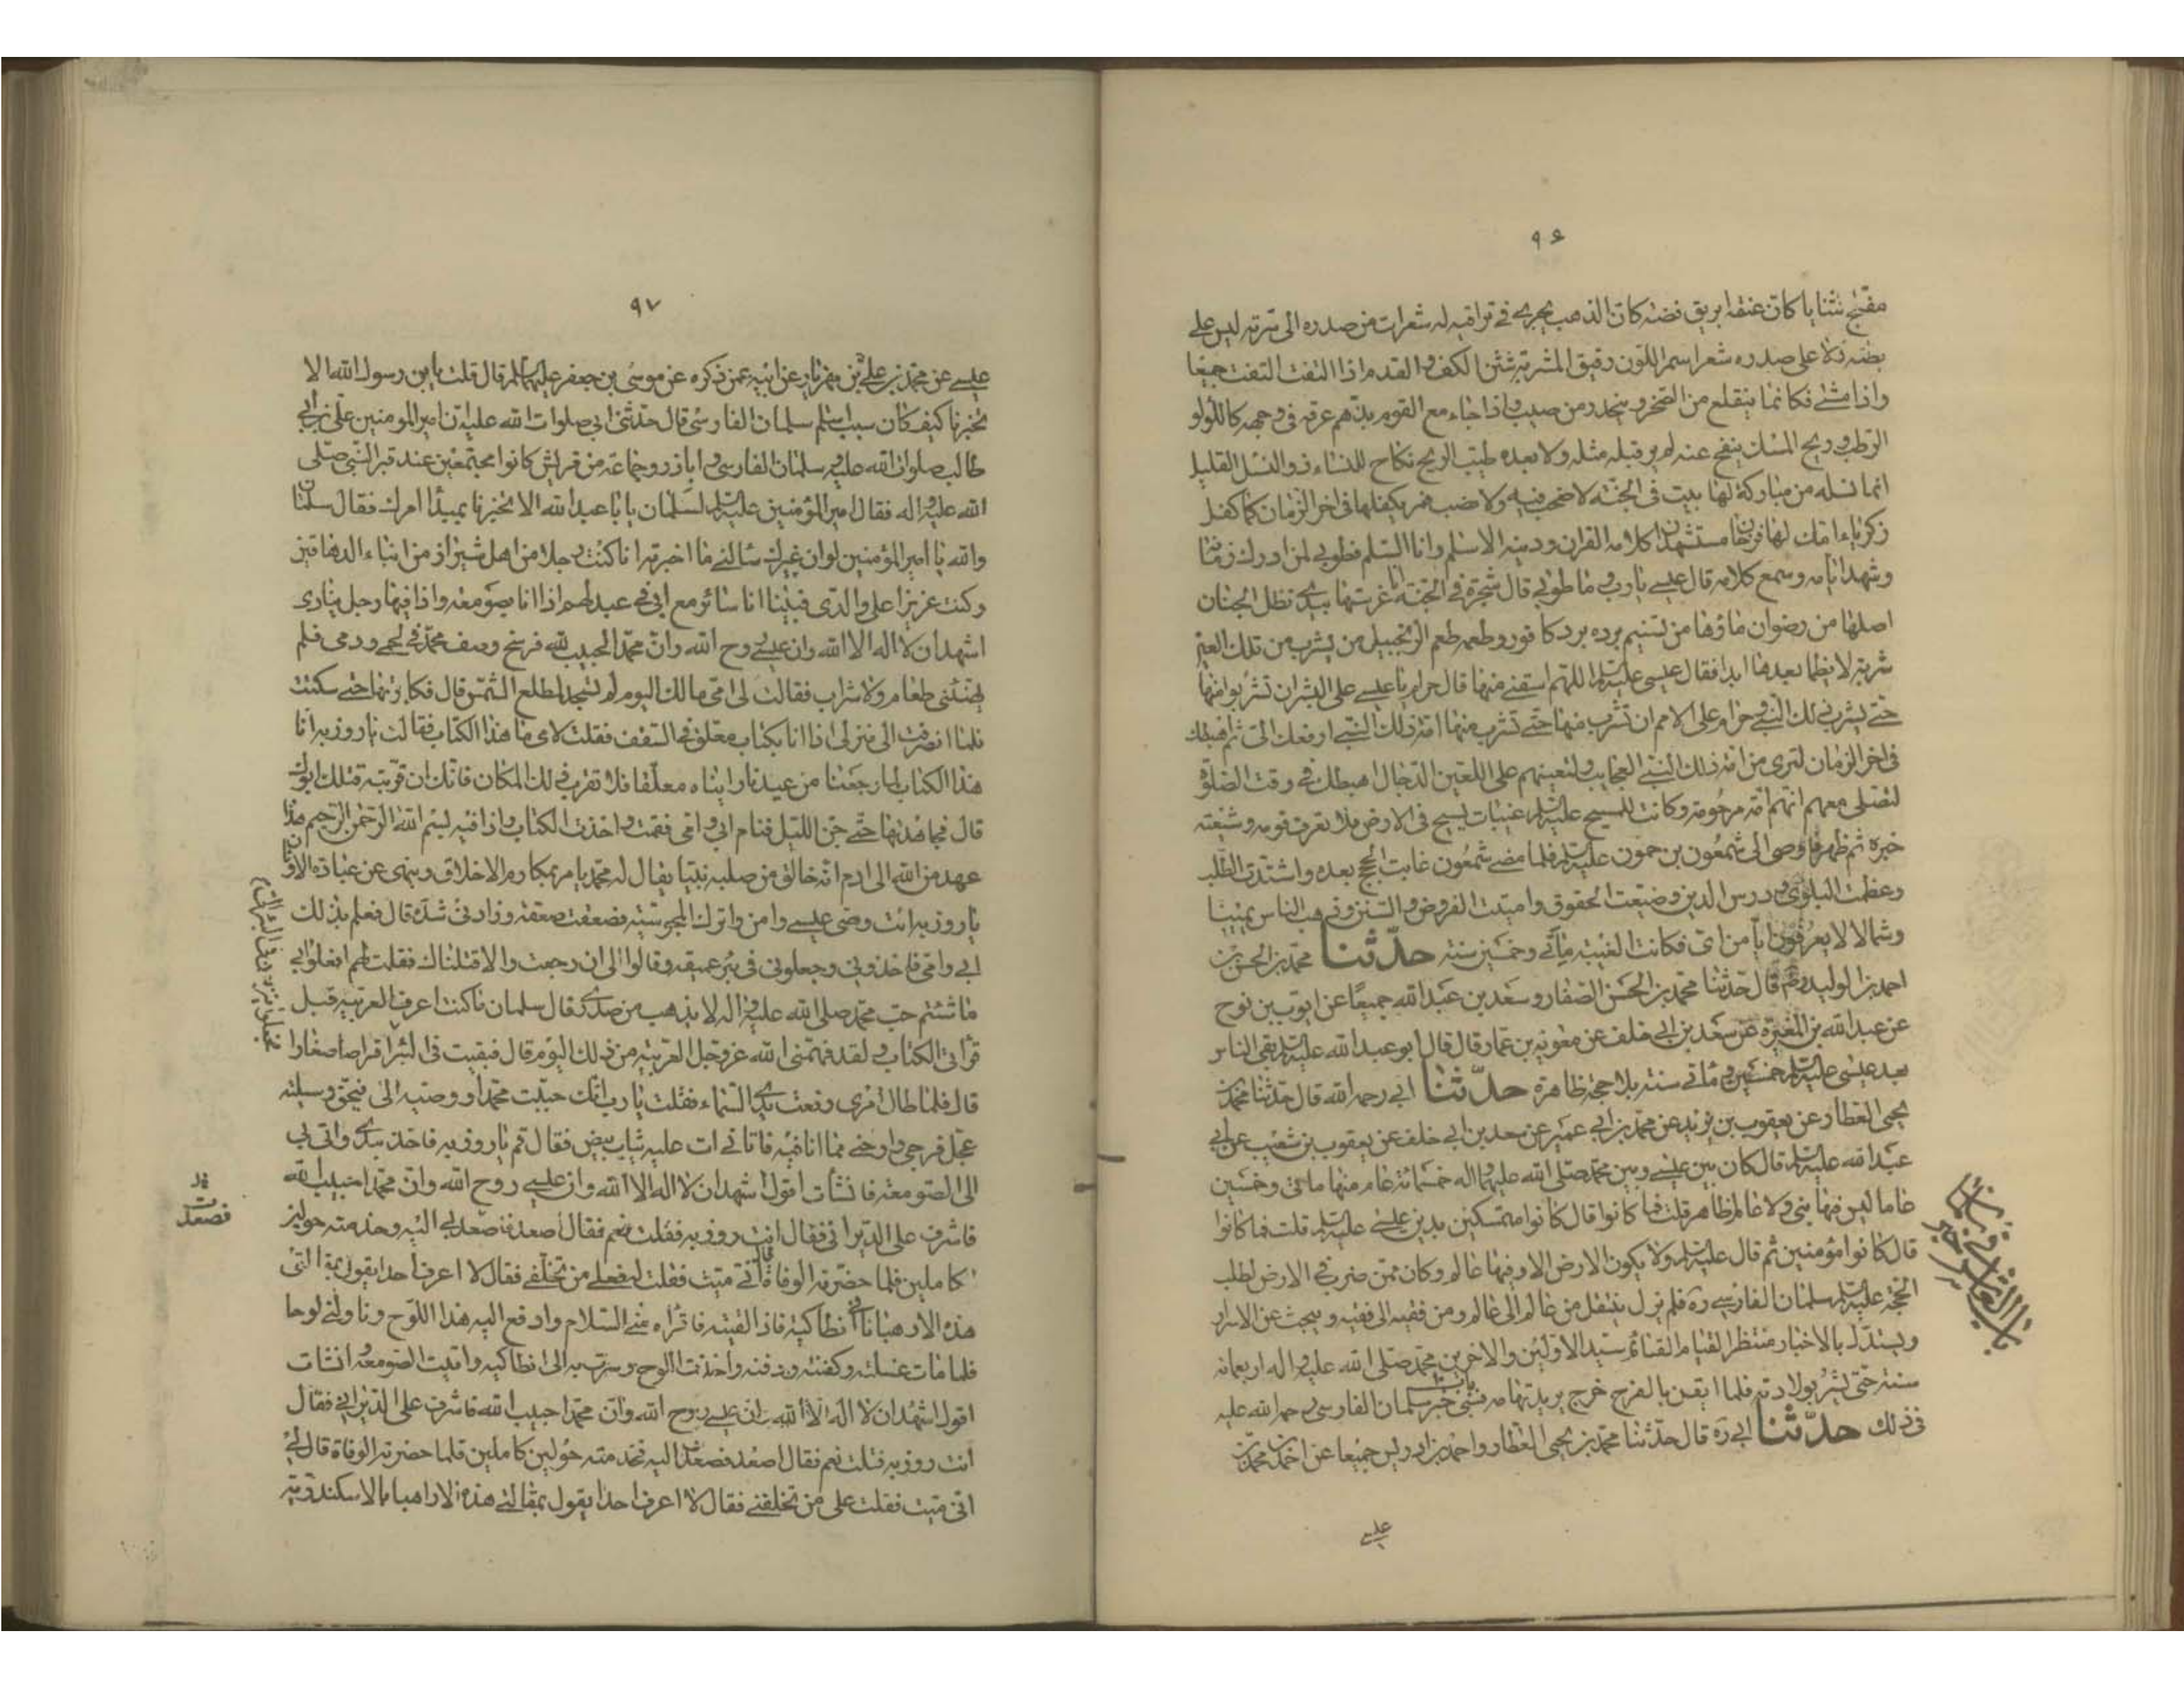 ٩۶
مفلج الثنايا كان عنقه ابريق فضه كان الذهب يجرى فى تراقيه له شعرات من صدره الى سرته ليس على
بطنه ولا على صدره شعر اسمر اللون دقيق المسربة شثن الكف و القدم اذا التفت التفت جميعا
واذا مشى فكانما ينقلع من الصخر و ينحدر من صبب و اذا جاء مع القوم بذهم عرقه فى وجهه كاللؤلؤ
الرطب و ريح المسك ينفح عنه لم ير قبله مثله ولا بعده طيب الريح نكاح للنساء ذو النسل القليل
انما نسله من مباركة لها بيت فى الجنة لا صخب فيه ولا نصب يكفلها فى اخر الزمان كما كفل
زكرياء امك لها فرخان مستشهدان كلامه القران و دينه الاسلم وانا السلم فطوبى لمن ادرك زمانه
وشهد ايامه و سمع كلامه قال عيسى يا رب و ما طوبى قال شجرة فى الجنة انا غرستها بيدى تظل الجنان
اصلها من رضوان ماؤها من تسنيم برده برد كافور و طعمه طعم الزنجبيل من يشرب من تلك العين
شربة لا يظما بعدها ابدا فقال عيسى عليه السلم اللهم اسقنى منها قال حرام يا عيسى على البشر ان تشربوا منها
حتى يشرب ذلك النبى و حرام على الامم ان تشرب منها حتى تشرب منها امة ذلك النبى ارفعك الى ثم اهبطك
فى اخر الزمان لترى من امة ذلك النبى العجايب ولتعينهم على اللعين الدجال اهبطك فى وقت الصلوة
لتصلى معهم انهم امة مرحومة و كانت للمسيح عليه السلم غيبات يسيح فى الارض فلا يعرف قومه و شيعته
خبره ثم ظهر فاوصى الى شمعون بن حمون عليه السلم فلما مضى شمعون غابت الحجج بعده و اشتدت الطلب
وعظمت البلوى و درس الدين و ضيعت الحقوق و اميتت الفروض و السنن و ذهب الناس يمينا
وشمالا لا يعرفون ايا من اى فكانت الغيبة ماتى و خمسين سنة حدثنا محمد بن الحسن بن
احمد بن الوليد رضه قال حدثنا محمد بن الحسن الصفار و سعد بن عبد الله جميعا عن ايوب بن نوح
عن عبد الله بن المغيرة عن سعد بن ابى خلف عن معوية بن عمار قال قال ابو عبد الله عليه السلم بقى الناس
بعد عيسى عليه السلم خمسين و ماتى سنة بلا حجة ظاهرة حدثنا ابى رحمه الله قال حدثنا محمد بن
يحيى العطار عن يعقوب بن يزيد عن محمد بن ابى عمير عن سعد بن ابى خلف عن يعقوب بن شعيب عن ابى
عبد الله عليه السلم قال كان بين عيسى و بين محمد صلى الله عليهما و اله خمسمائة عام منها ماتى و خمسين
عاما ليس فيها نبى ولا عالم ظاهر قلت فما كانوا قال كانوا متمسكين بدين عيسى عليه السلم قلت فما كانوا
قال كانوا مؤمنين ثم قال عليه السلم ولا يكون الارض الا و فيها عالم و كان ممن ضرب فى الارض لطلب
الحجة عليه السلم سلمان الفارسى ره فلم يزل ينتقل من عالم الى عالم و من فقيه الى فقيه و يبحث عن الاسرار
ويستدل بالاخبار منتظرا لقيام القائم سيد الاولين و الاخرين محمد صلى الله عليه و اله اربعمائة
سنة حتى بشر بولادته فلما ايقن بالفرج خرج يريد تهامة فسبى باب خبر سلمان الفارسى رحمه الله عليه
فى ذلك حدثنا ابى ره قال حدثنا محمد بن يحيى العطار و احمد بن ادريس جميعا عن احمد بن محمد بن
عيسى
٩٧
عيسى عن محمد بن على بن مهزيار عن ابيه عمن ذكره عن موسى بن جعفر عليهما السلم قال قلت يابن رسول الله الا
تخبرنا كيف كان سبب اسلم سلمان الفارسى قال حدثنى ابى صلوات الله عليه ان امير المومنين على بن ابى
طالب صلوات الله عليه و سلمان الفارسى و اباذر و جماعة من قريش كانوا مجتمعين عند قبر النبى صلى
الله عليه و اله فقال امير المؤمنين عليه السلم لسلمان يا با عبد الله الا تخبرنا بمبدأ امرك فقال سلمان
والله يا امير المؤمنين لو ان غيرك سالنى ما اخبرته انا كنت رجلا من اهل شيراز من ابناء الدهاقين
وكنت عزيزا على والدى فبينا انا سائر مع ابى فى عيد لهم اذا انا بصومعة و اذا فيها رجل ينادى
اشهد ان لا اله الا الله وان عيسى روح الله وان محمدا حبيب الله فرسخ وصف محمد فى لحمى و دمى فلم
يهنئنى طعام ولا شراب فقالت لى امى مالك اليوم لم تسجد لمطلع الشمس قال فكابرتها حتى سكتت
فلما انصرفت الى منزلى اذا انا بكتاب معلق فى السقف فقلت لامى ما هذا الكتاب فقالت يا روزبه ان
هذا الكتاب لما رجعنا من عيدنا راينا ه معلقا فلا تقرب ذلك المكان فانك ان قربته قتلك ابوك
قال فجاهدتها حتى جن الليل فنام ابى و امى فقمت و اخذت الكتاب و اذا فيه بسم الله الرحمن الرحيم هذا
عهد من الله الى ادم انه خالق من صلبه نبيا يقال له محمد يامر بمكارم الاخلاق و ينهى عن عبادة الاوثان
يا روزبه ائت وصى عيسى و امن و اترك المجوسية فصعقت صعقة و زادنى شدة قال فعلم بذلك
ابى و امى فاخذونى و جعلونى فى بئر عميقة و قالوا لى ان رجعت والا قتلناك فقلت لهم افعلوا بى
ما شئتم حب محمد صلى الله عليه و اله لا يذهب من صدرى قال سلمان ما كنت اعرف العربية قبل
قراءتى الكتاب و لقد فهمنى الله عز وجل العربية من ذلك اليوم قال فبقيت فى البئر اقراصا صغارا
قال فلما طال امرى رفعت يدى الى السماء فقلت يا رب انك حببت محمدا و وصيه الى فبحق وسيلته
عجل فرجى و ارحنى مما انا فيه فاتانى ات عليه ثياب بيض فقال قم يا روزبه فاخذ بيدى و اتى بى
الى الصومعة فانشأت اقول اشهد ان لا اله الا الله وان عيسى روح الله وان محمدا حبيب الله
فاشرف على الديرانى فقال انت روزبه فقلت نعم فقال اصعد فاصعدنى اليه و خدمته حولين
كاملين فلما حضرته الوفاة قال انى ميت فقلت له فعلى من تخلفنى فقال لا اعرف احدا يقول بمقالتى
هذه الا راهبا بانطاكية فاذا لقيته فاقراه منى السلام و ادفع اليه هذا اللوح و ناولنى لوحا
فلما مات غسلته و كفنته و دفنته و اخذت اللوح و سرت به الى انطاكيه و اتيت الصومعة و انشات
اقول اشهد ان لا اله الا الله وان عيسى روح الله وان محمدا حبيب الله فاشرف على الديرانى فقال
انت روزبه فقلت نعم فقال اصعد فصعدت اليه فخدمته حولين كاملين فلما حضرته الوفاة قال لى
انى ميت فقلت على من تخلفنى فقال لا اعرف احدا يقول بمقالتى هذه الا راهبا بالاسكندرية
فصعدت